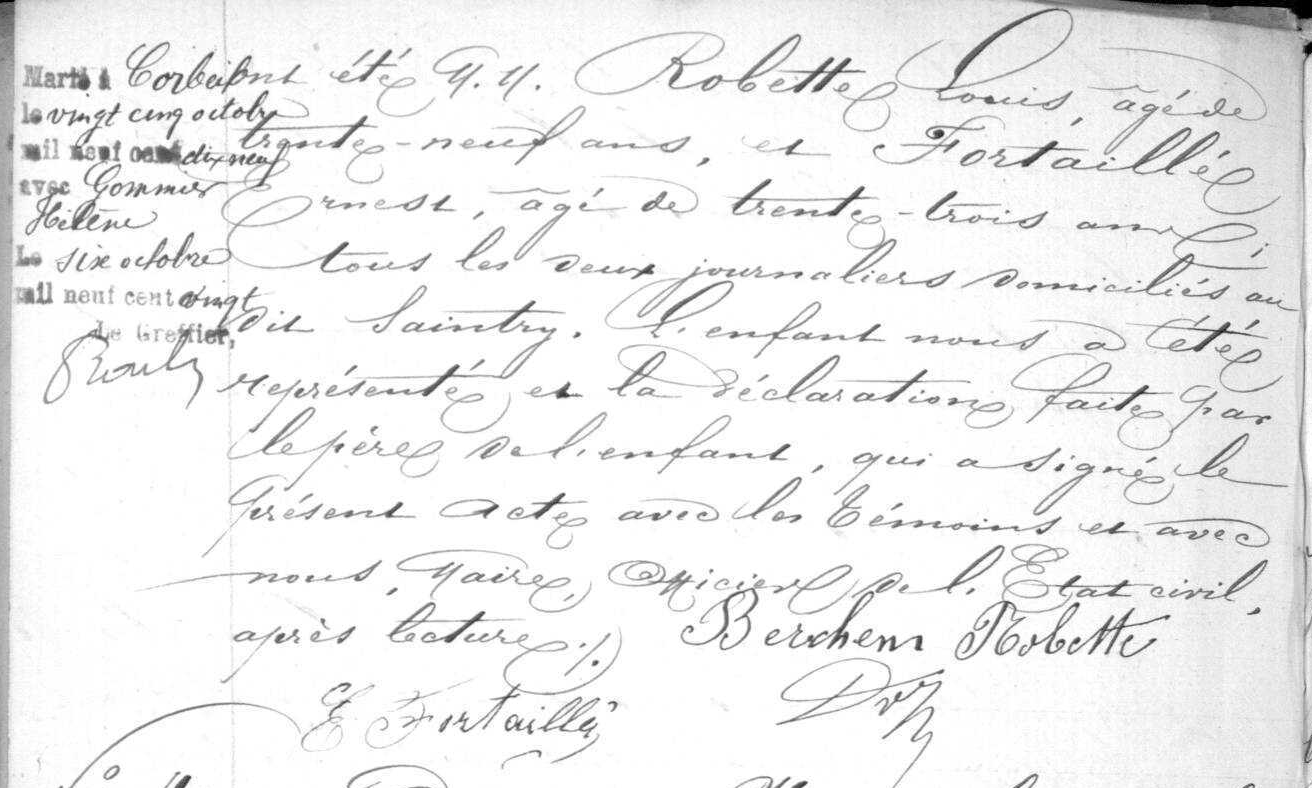 Marié à Corbeil
le vingt cinq octobre
mil neuf cent dix neuf
avec Gommier
Hélène
Le six octobre
mil neuf cent vingt
Le Greffier,
ont été M.M. Robette Louis, âgé de
trente-neuf ans, et Fortaillé
Ernest, âgé de trente-trois ans,
tous les deux journaliers domiciliés au
dit Saintry. L'enfant nous a été
représenté et la déclaration faite par
le père de l'enfant, qui a signé le
présent acte avec les témoins et avec
nous, Maire, Officier de l'Etat civil,
après lecture ./.
Berchem Robette
E Fortaillé